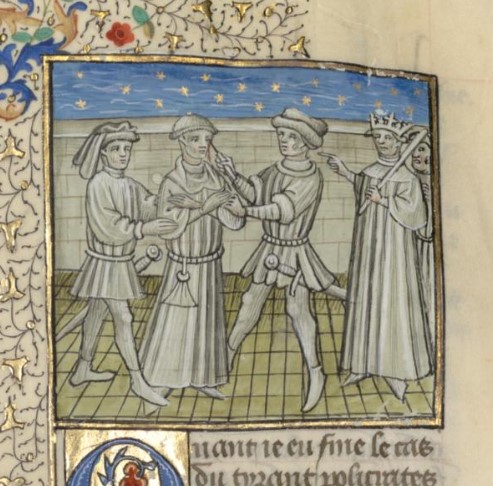 Quant ie eu fine le cas
du tyrant policrates